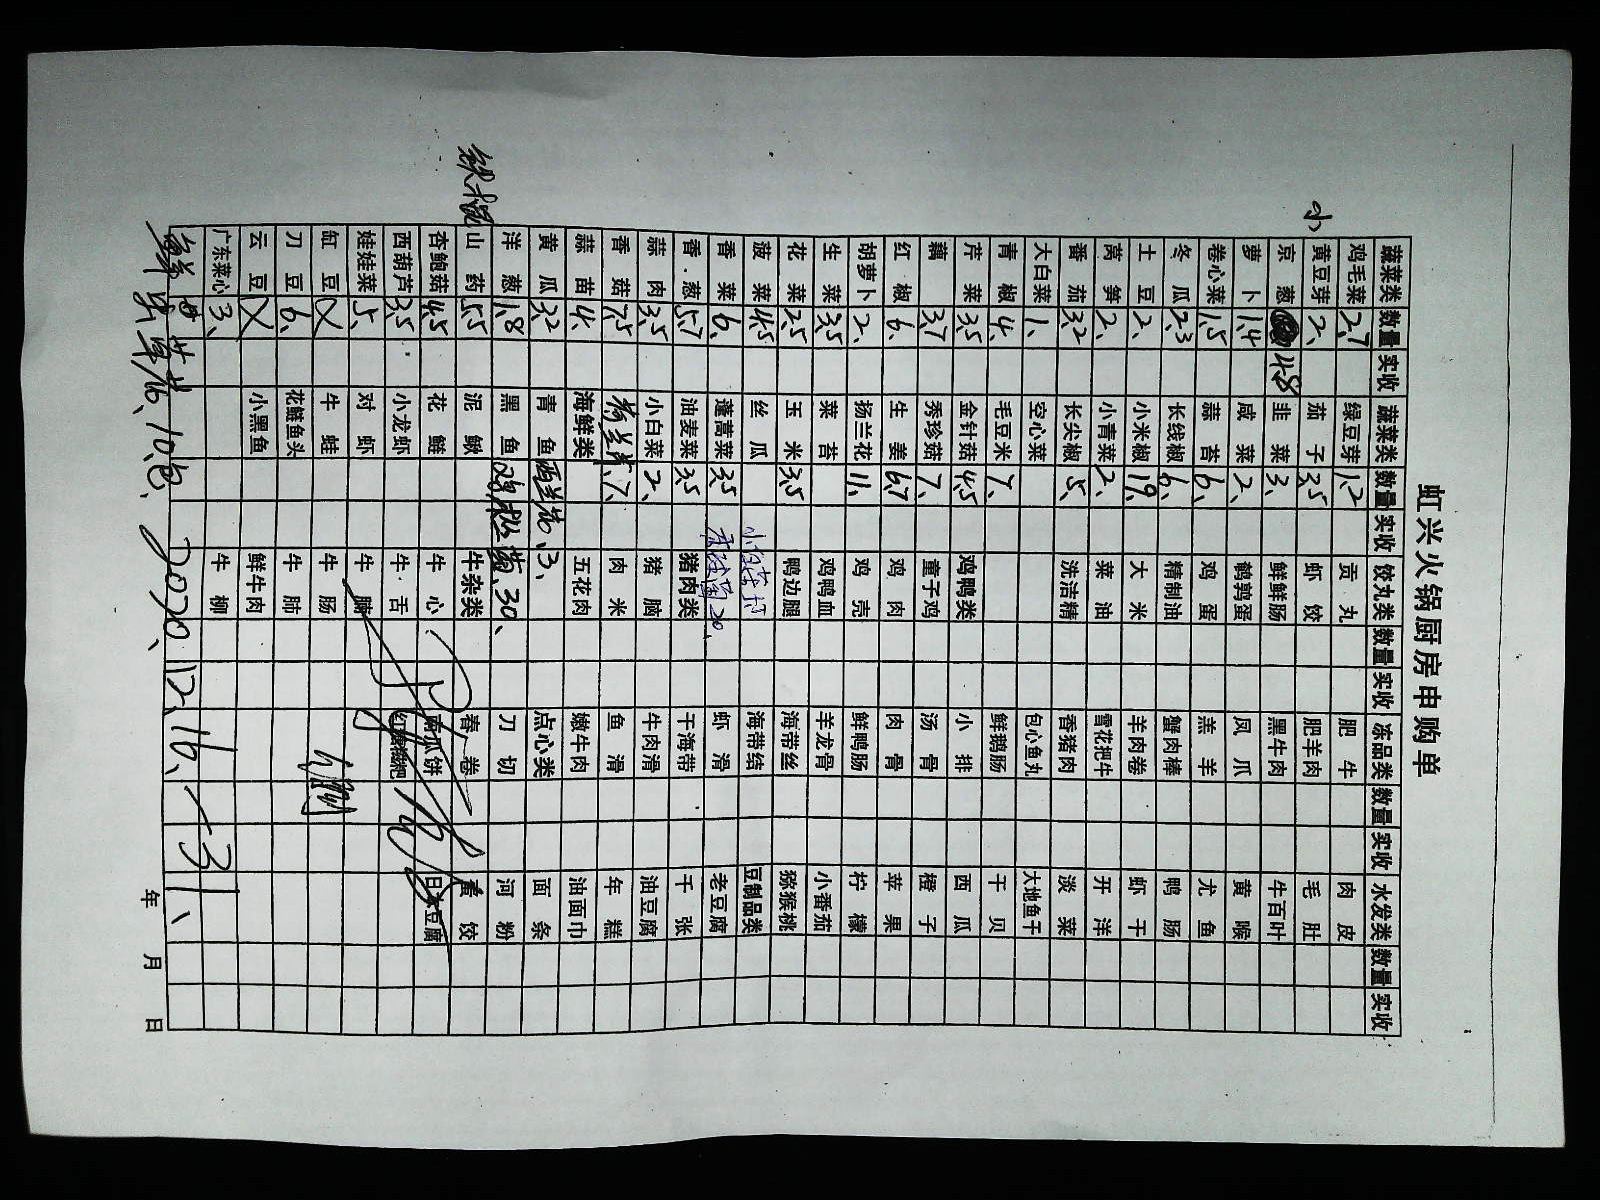 虹兴火锅厨房申购单
蔬菜类 数量 实收 蔬菜类 数量 实收 饺丸类 数量 实收 冻品类 数量 实收 水发类 数量 实收
鸡毛菜 2.7 绿豆芽 1.2 贡丸 肥牛 肉皮
黄豆芽 2、 茄子 3.5 虾饺 肥羊肉 毛肚
京葱 4.8 韭菜 3、 鲜鲜肠 黑牛肉 牛百叶
萝卜 1.4 咸菜 2、 鹌鹑蛋 凤爪 黄喉
卷心菜 1.5 蒜苔 6、 鸡蛋 羔羊 尤鱼
冬瓜 2.3 长线椒 6、 精制油 蟹肉棒 鸭肠
土豆 2、 小米椒 19、 大米 羊肉卷 虾干
莴笋 2、 小青菜 2、 菜油 雪花把牛 开洋
番茄 3.2 长尖椒 5、 洗洁精 香猪肉 淡菜
大白菜 1、 空心菜 包心鱼丸 大地鱼干
青椒 4、 毛豆米 7、 鲜鹅肠 干贝
芹菜 3.5 金针菇 4.5 鸡鸭类 小排 西瓜
藕 3.7 秀珍菇 7、 童子鸡 汤骨 橙子
红椒 6、 生姜 6.7 鸡肉 肉骨 苹果
胡萝卜 2、 扬兰花 11、 鸡壳 鲜鸭肠 柠檬
生菜 3.5 菜苔 鸡鸭血 羊龙骨 小番茄
花菜 2.5 玉米 3.5 鸭边腿 海带丝 猕猴桃
菠菜 4.5 丝瓜 海带结 豆制品类
香菜 6、 蓬蒿菜 3.5 20、 虾滑 老豆腐
香.葱 5.7 油麦菜 3.5 猪肉类 干海带 千张
蒜肉 3.5 小白菜 2、 猪脑 牛肉滑 油豆腐
香菇 7.5 7、 肉米 鱼滑 年糕
蒜苗 4、 海鲜类 五花肉 嫩牛肉 油面巾
黄瓜 3.2 青鱼 西兰花、3、 点心类 面条
洋葱 1.8 黑鱼 30、 刀切 河粉
山药 5.5 泥鳅 牛杂类 春卷 羹饺
杏鲍菇 4.5 花鲢 牛心 南瓜饼 日本豆腐
西葫芦 3.5 小龙虾 牛舌 红糖糍粑
娃娃菜 5、 对虾 牛
缸豆 X 牛蛙 牛肠
刀豆 6、 花鲢鱼头 牛肺
云豆 X 小黑鱼 鲜牛肉
广东菜心 3、 牛柳
10包、2020、12.16、—31、
年 月 日